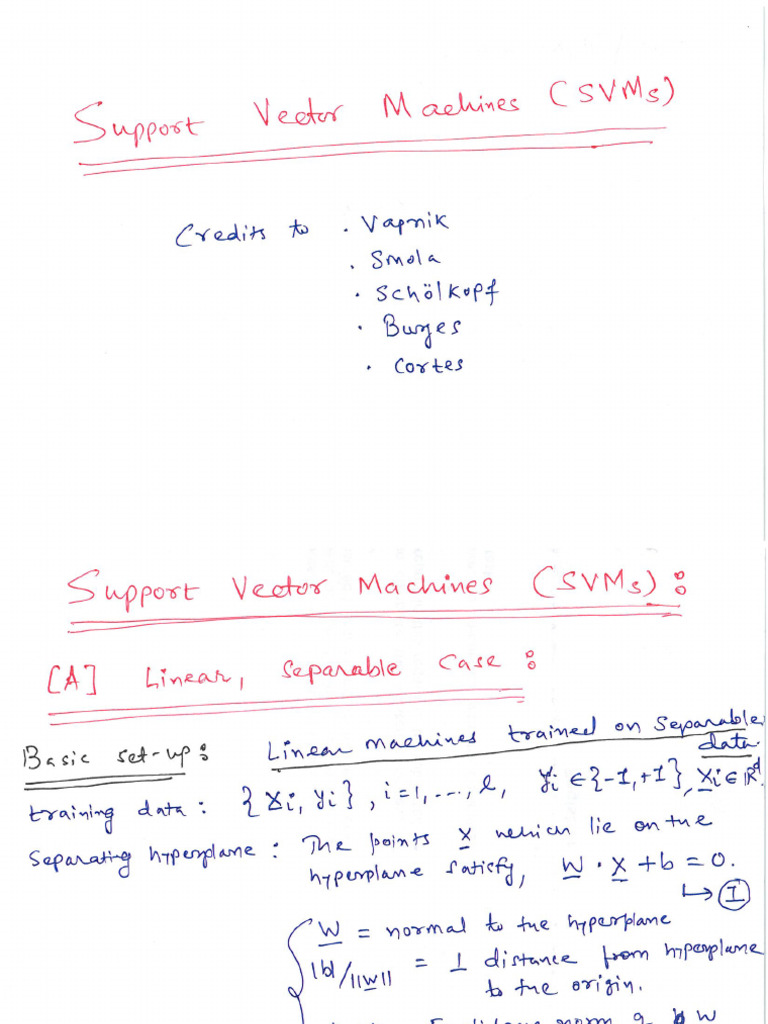 Support Vector Machines (SVMs)
Credits to . Vapnik
. Smola
. Schölkopf
. Burges
. Cortes
Support Vector Machines (SVMs) :
[A] Linear, Separable Case :
Basic set-up : Linear machines trained on separable data.
training data : {x̲i, yi}, i=1,...,l, yi ∈ {-1,+1}, x̲i ∈ ℝᵈ
separating hyperplane : The points x̲ which lie on the
hyperplane satisfy, w̲ · x̲ + b = 0.
↳ (I)
w̲ = normal to the hyperplane
|b|/||w̲|| = ⊥ distance from hyperplane
to the origin.
norm of w